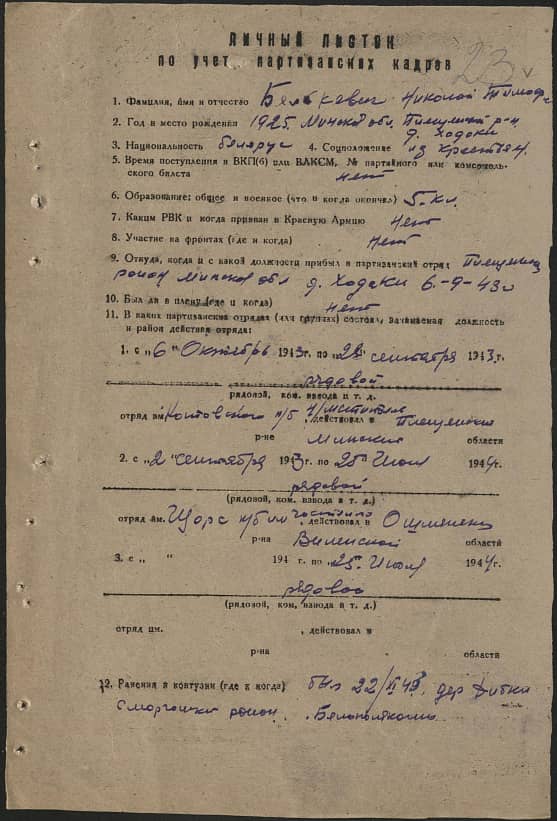 ЛИЧНЫЙ ЛИСТОК
по учету партизанских кадров
23
1. Фамилия, имя и отчество Белькевич Николай Тимоф
2. Год и место рождения 1925. Минской обл. Плещеницк р-н
д. Ходаки
3. Национальность беларус 4. Соцположение из крестьян.
5. Время поступления в ВКП(б) или ВЛКСМ, № партийного или комсомоль-
ского билета нет
6. Образование: общее и военное (что и когда окончил) 5. кл.
7. Каким РВК и когда призван в Красную Армию Нет
8. Участие на фронтах (где и когда) Нет
9. Откуда, когда и с какой должности прибыл в партизанский отряд Плещениц
район Минской обл д. Ходаки 6-9-43г
10. Был ли в плену (где и когда) нет
11. В каких партизанских отрядах (или группах) состоял, занимаемая должность
и район действия отряда:
1. с „6" Октябрь 1943г. по „28" сентября 1943г.
рядовой
(рядовой, ком. взвода и т. д.)
отряд им. Котовского п/б , действовал в Плещеницки
р-не Минской области
2. с „2" сентября 1943г. по „25" Июля 1944г.
рядовой
(рядовой, ком. взвода и т. д.)
отряд им. Щорс п/б им , действовал в Ошмянском
р-на Виленской области
3. с „ " 194 г. по „25" Июля 1944г.
рядовой
(рядовой, ком. взвода и т. д.)
отряд им. , действовал в
р-на области
12. Ранения и контузии (где и когда) был 22/II 43, дер
Сморгонский район.